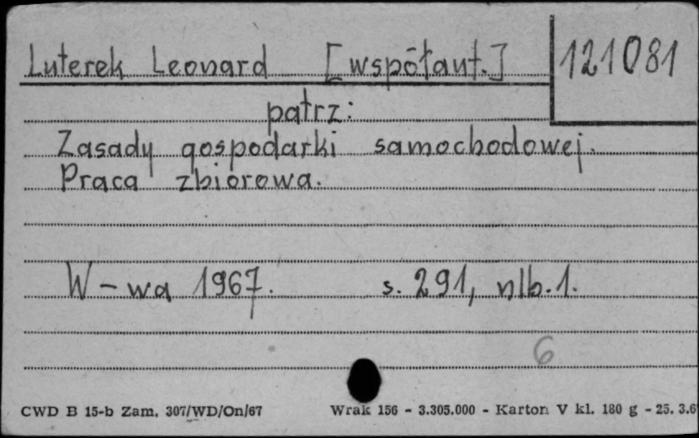 Luterek Leonard [współaut.] 121081
patrz:
Zasady gospodarki samochodowej.
Praca zbiorowa.
W-wa 1967. s. 291, nlb. 1.
6
CWD B 15-b Zam. 307/WD/On/67 Wrak 156 - 3.305.000 - Karton V kl. 180 g - 25. 3.6